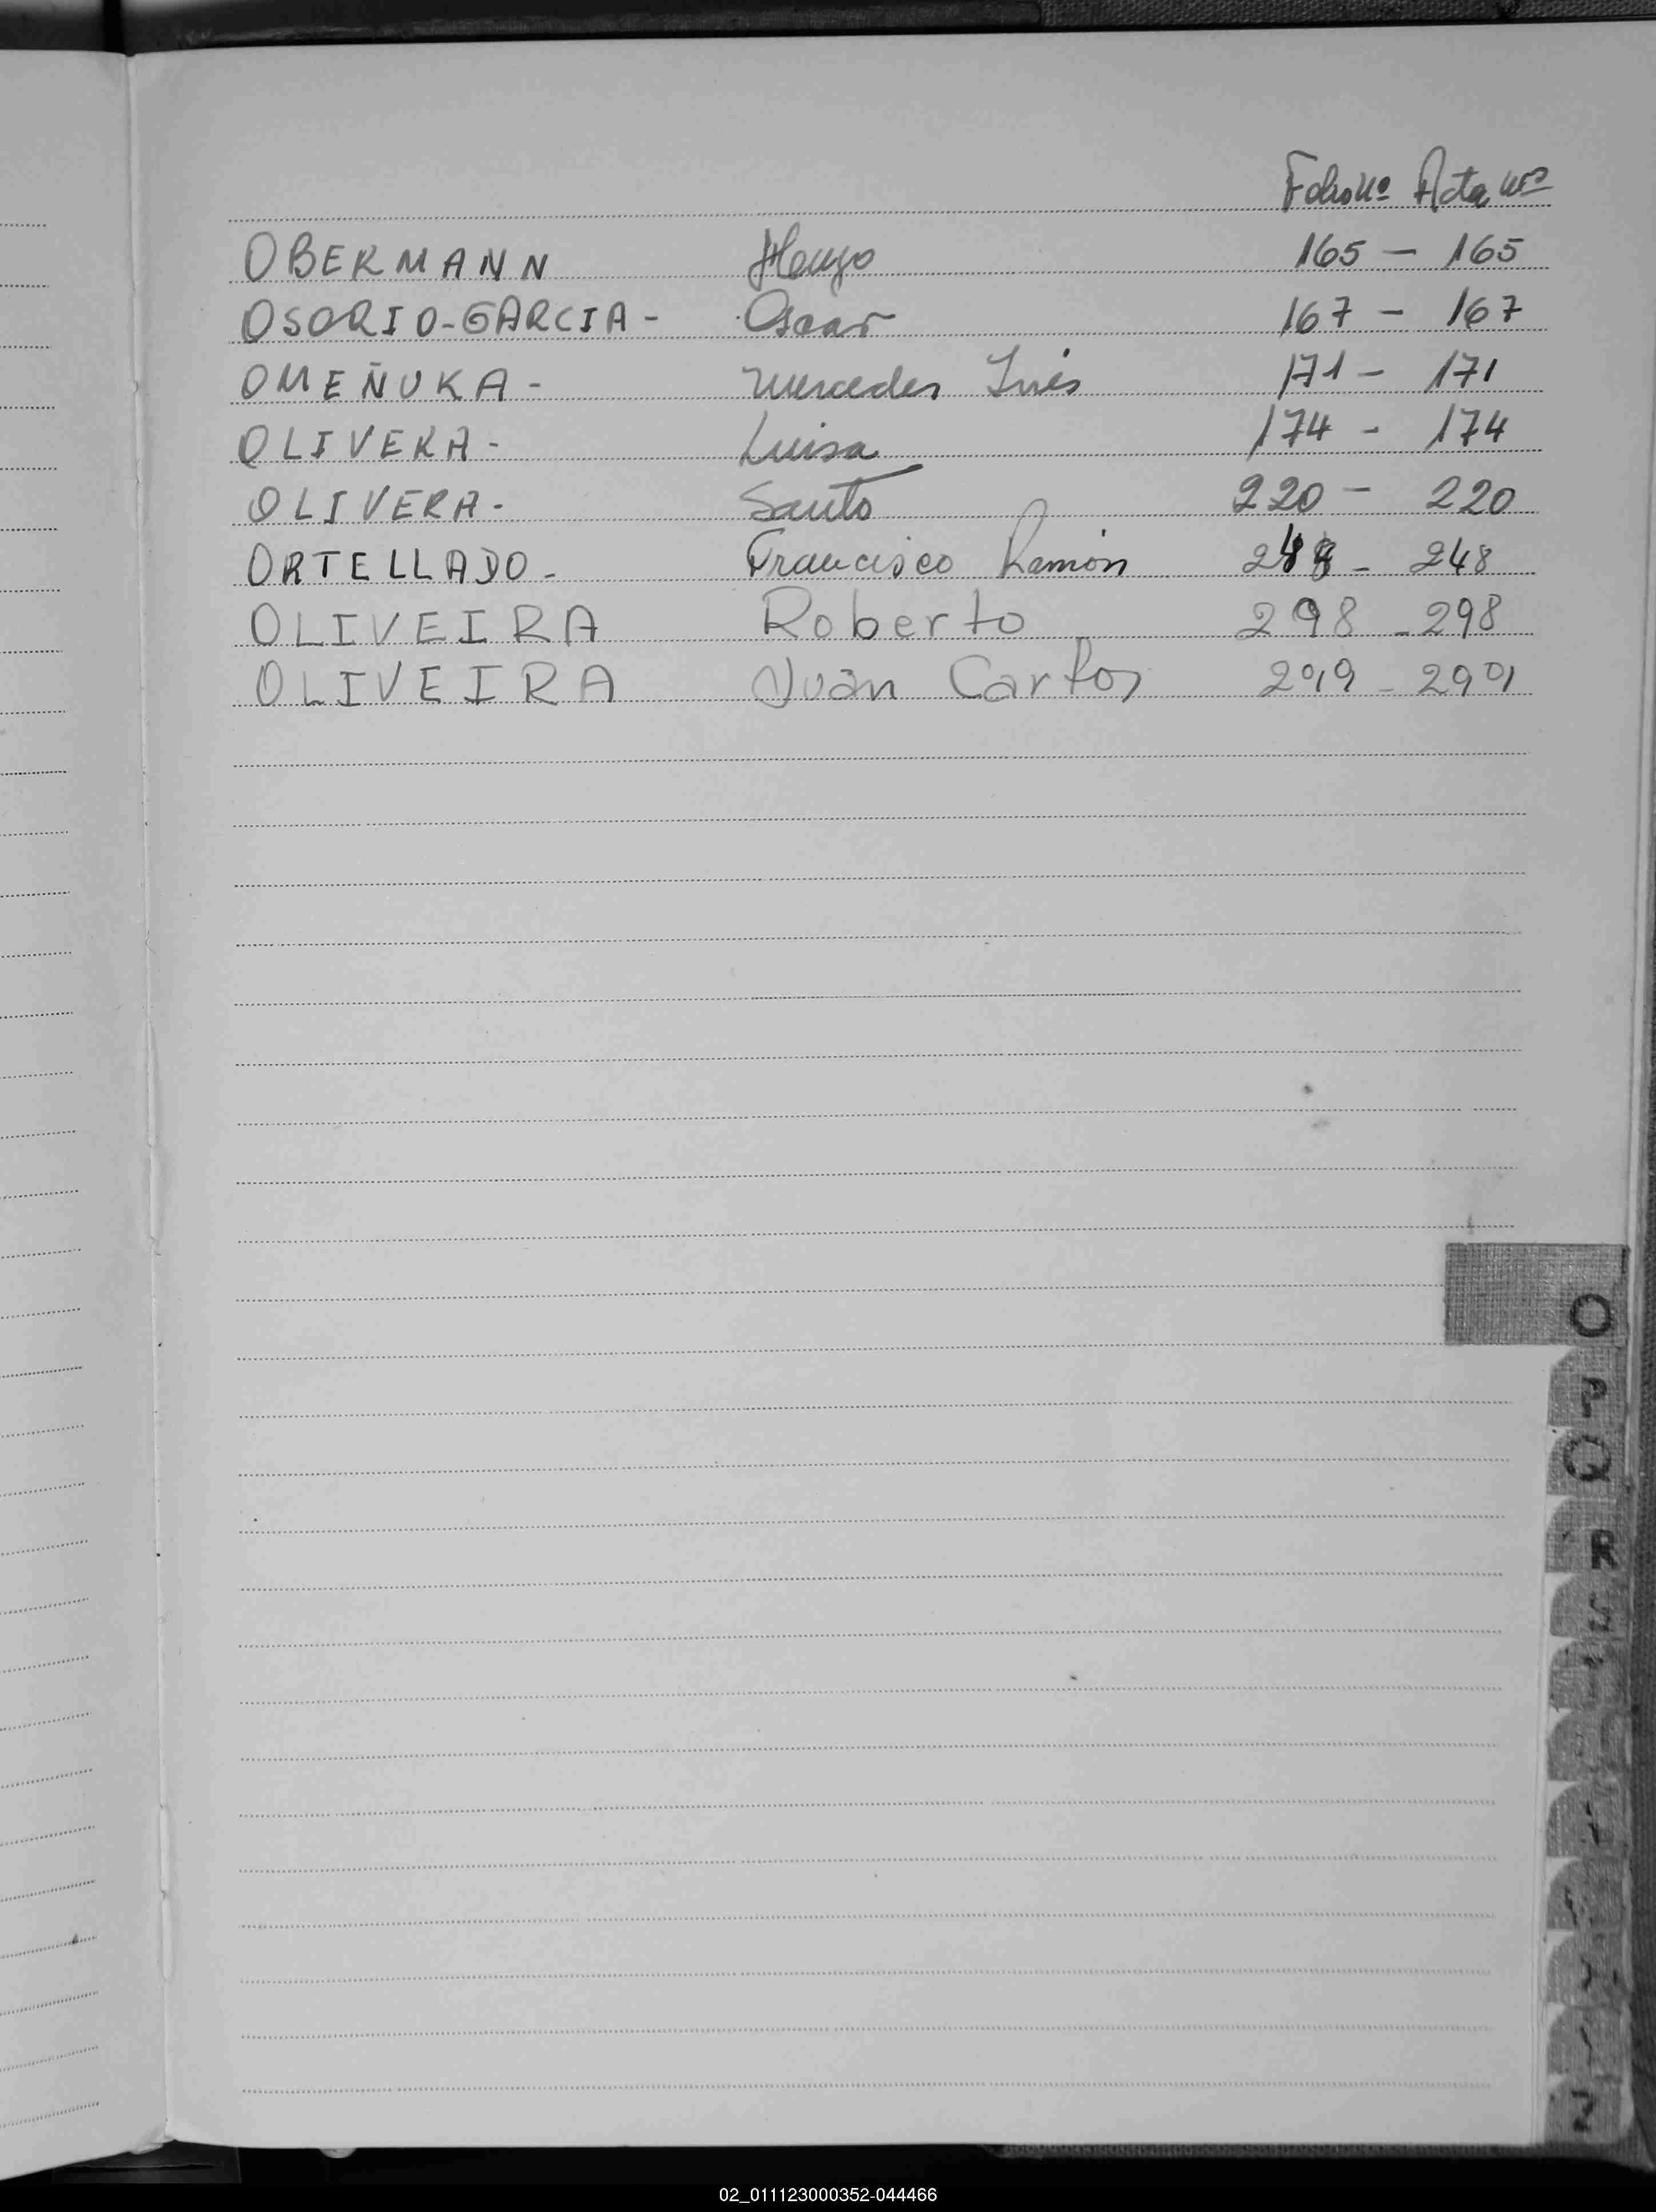 Folio Nº Acta Nº
OBERMANN Hugo 165 - 165
OSORIO-GARCIA - Oscar 167 - 167
OMEÑUKA - Mercedes Inés 171 - 171
OLIVERA - Luisa 174 - 174
OLIVERA - Santo 220 - 220
ORTELLADO - Francisco Ramón 248 - 248
OLIVEIRA Roberto 298 - 298
OLIVEIRA Juan Carlos 299 - 299
O
P
Q
R
S
Z
02_011123000352-044466